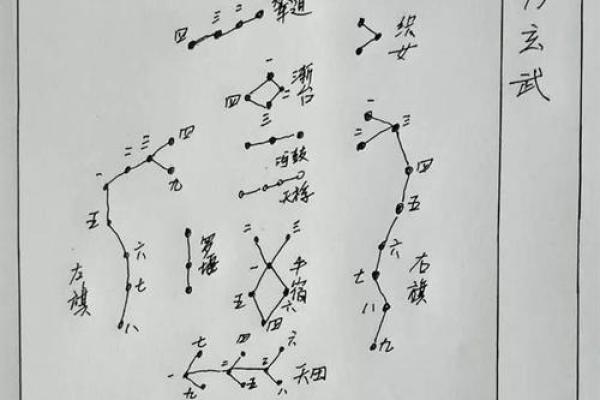 玄武
四 三 二 一 辇道
织女
一 二 三 四 渐台
河鼓
天桴
一 二 三 四 五 六 七 八 九 左旗
罗堰
一 二 三 四 五 六 牛宿
一 二 三 四 五 六 七 八 九 右旗
一 二 三 四 五 六 七 八 九 天田